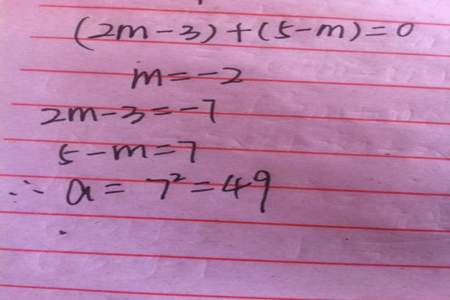 (2m-3)+(5-m)=0
m=-2
2m-3=-7
5-m=7
∴ a= 7²=49